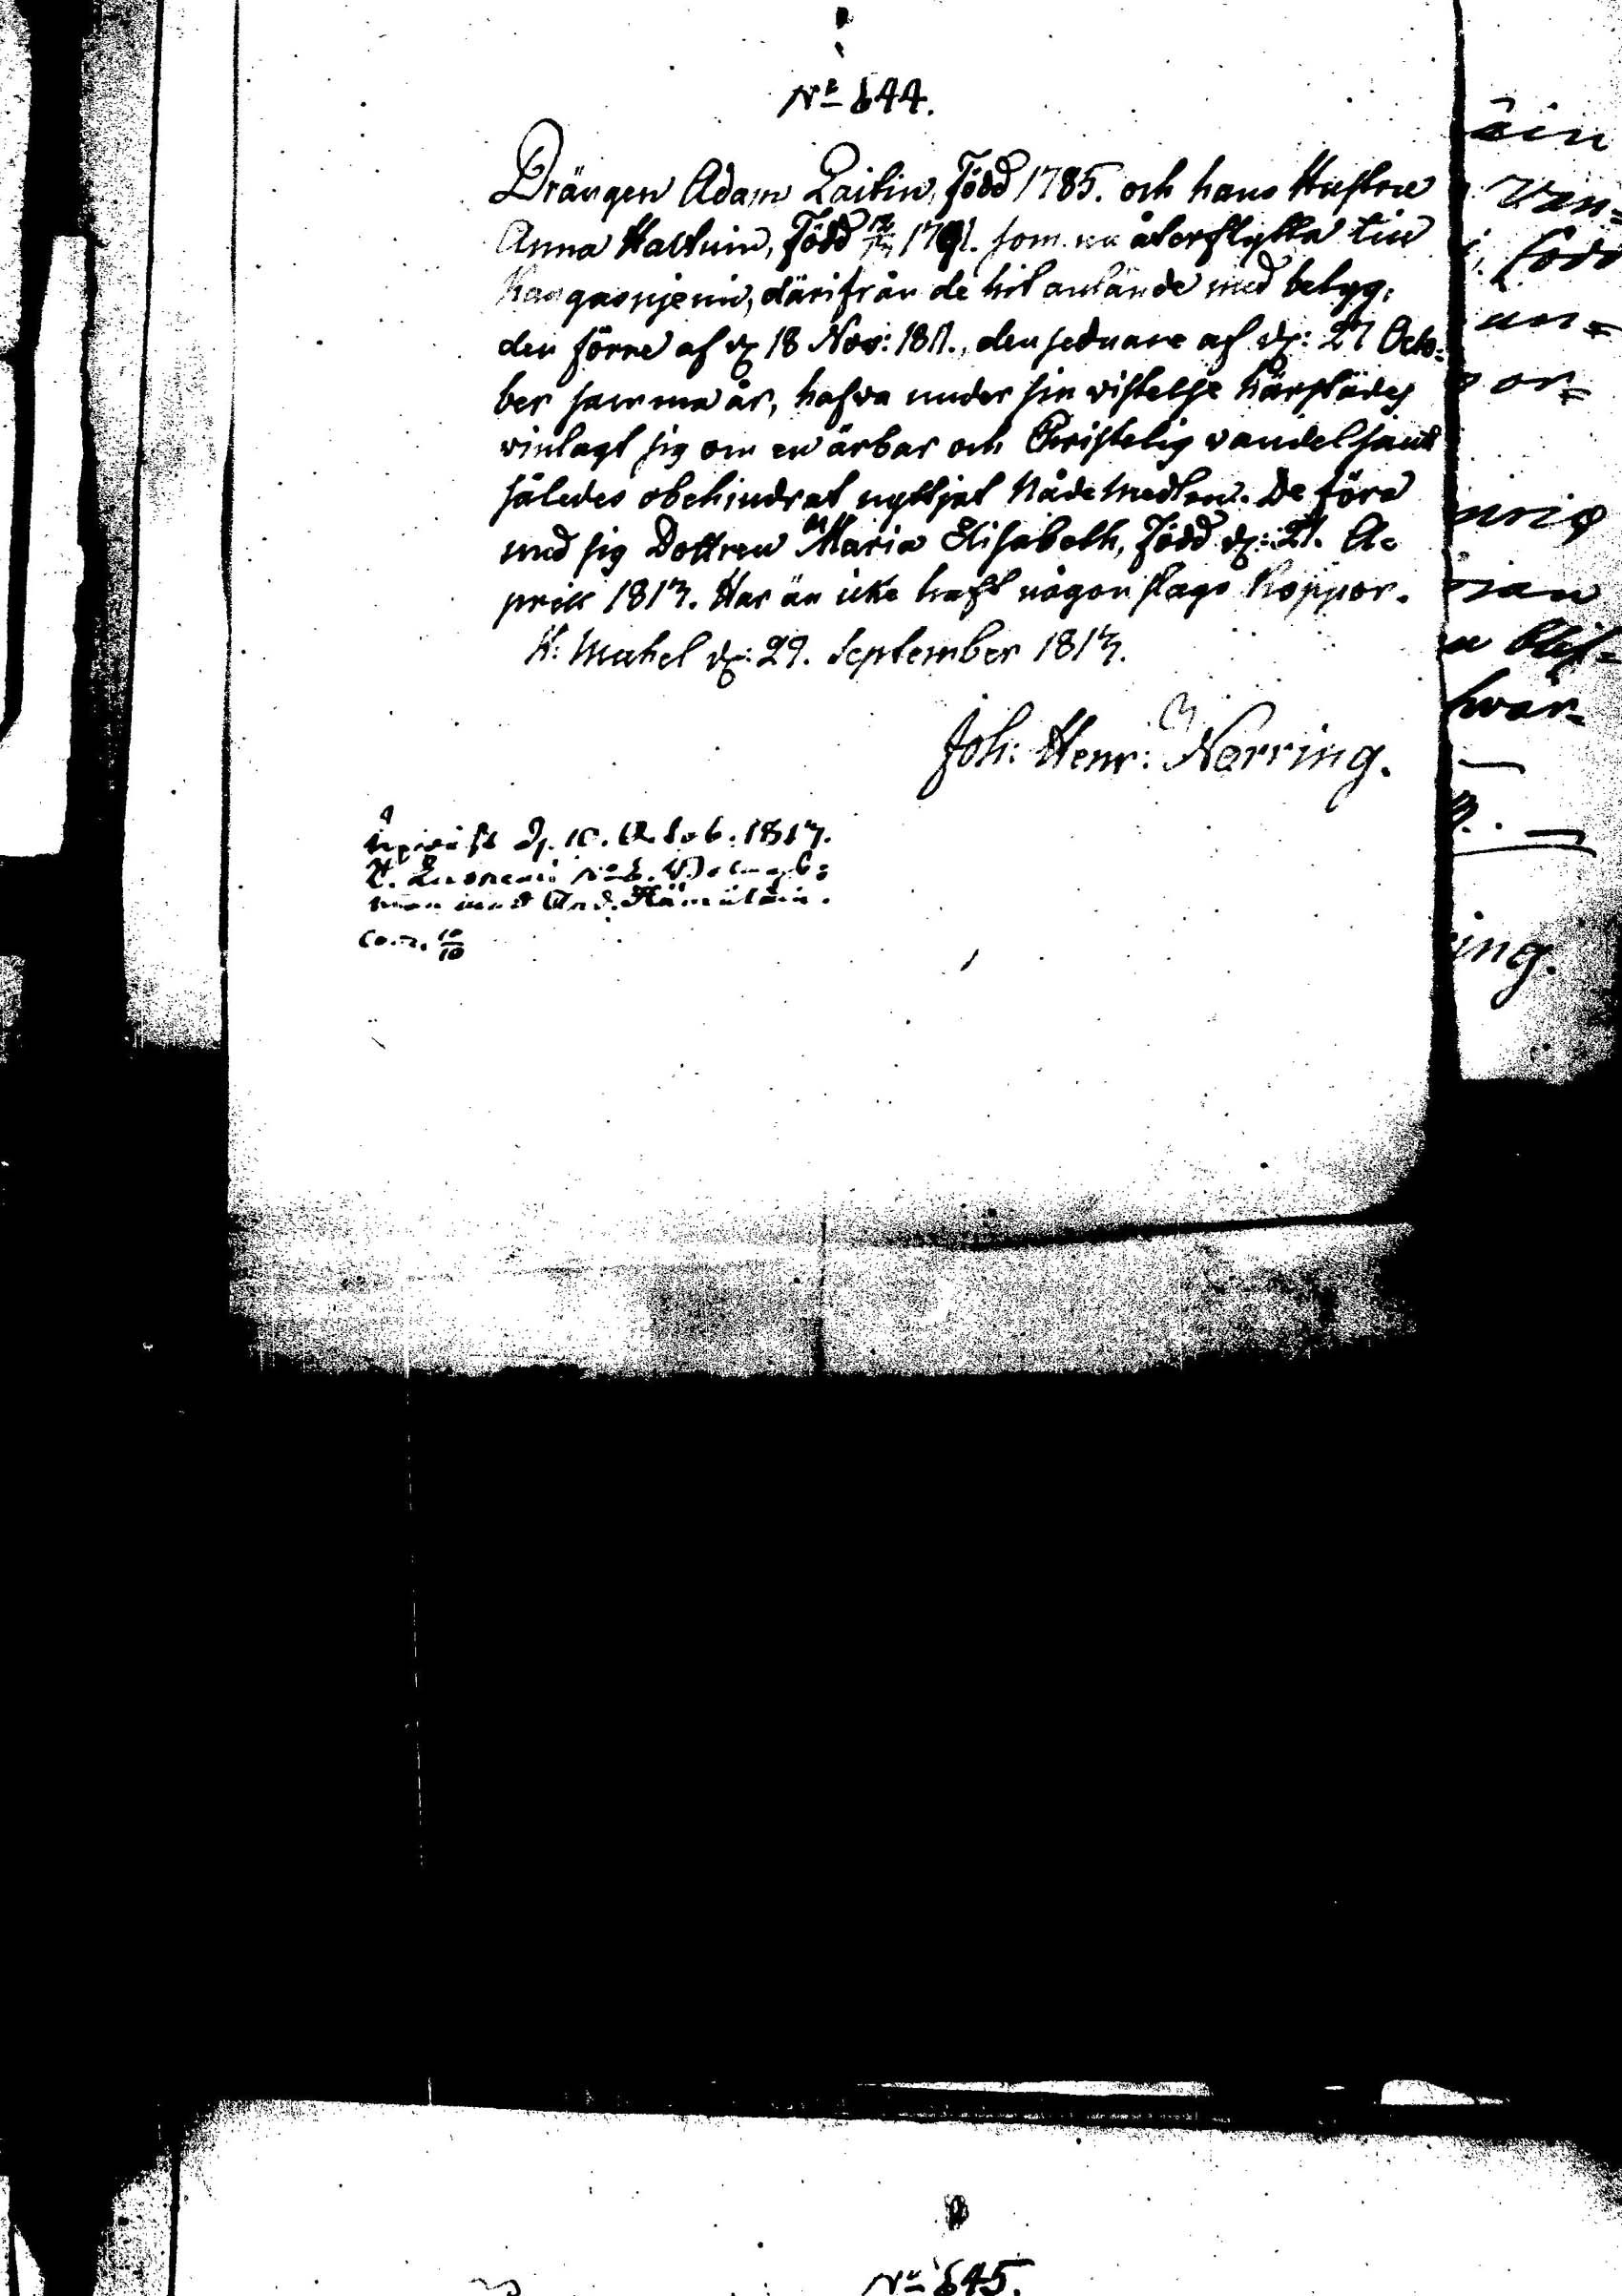 No 644.
Drängen Adam Laitin, Född 1785. och hans Hustru
Anna Halttuin, Född 1791. som nu återflytta till
Kangasnjemi, därifrån de hit anlände med betyg,
den förre af dn 18 Nov: 1811., den sednare af dn: 27 Octo-
ber samma år, hafva under sin vistelse härstädes
vinlagt sig om en ärbar och Christelig vandel samt
således obehindrat nyttjat Nåde Medlen. De föra
med sig Dottren Maria Elisabeth, Född dn: 21. A-
prill 1813. Har än icke haft någon slags koppor.
St: Michel dn: 29. September 1813.
Joh: Henr: Nerring.
d. 10. Octob. 1813.
And. Hämäläin.
10/10
äin
Van-
född
un-
or-
rian
blif-
hvar-
ing.
No 645.